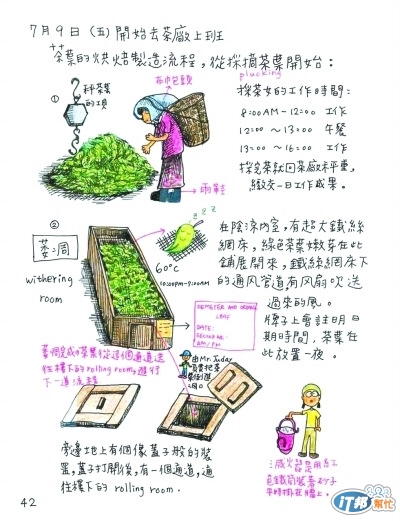 7月9日(五)開始去茶廠上班
茶葉的烘焙製造流程,從採摘茶葉開始:
plucking
秤茶葉的項
①
布巾包頭
雨鞋
採茶女的工作時間:
8:00AM-12:00 工作
12:00 ~ 13:00 午餐
13:00 ~ 16:00 工作
採完茶就回茶廠來秤重,
繳交一日工作成果。
②
萎凋
withering
room
z z z
60°C
在陰涼內室,有超大鐵絲
網床,綠色茶葉嫩芽在此
鋪展開來,鐵絲網床下
的通風管道有風扇吹送
過來的風。
牌子上會註明日
期時間,茶葉在
此放置一夜。
LEAF
DATE:
AM/PM
萎凋完成の茶葉從這個通道送
往樓下的rolling room,進行
下一道流程
由Mr. Juday
旁邊地上有個像蓋子般的裝
置,蓋子打開後,有一個通道,通
往樓下的 rolling room.
滅火器是用紅
色鐵筒裝著砂子
平時掛在牆上。
42
iT邦幫忙